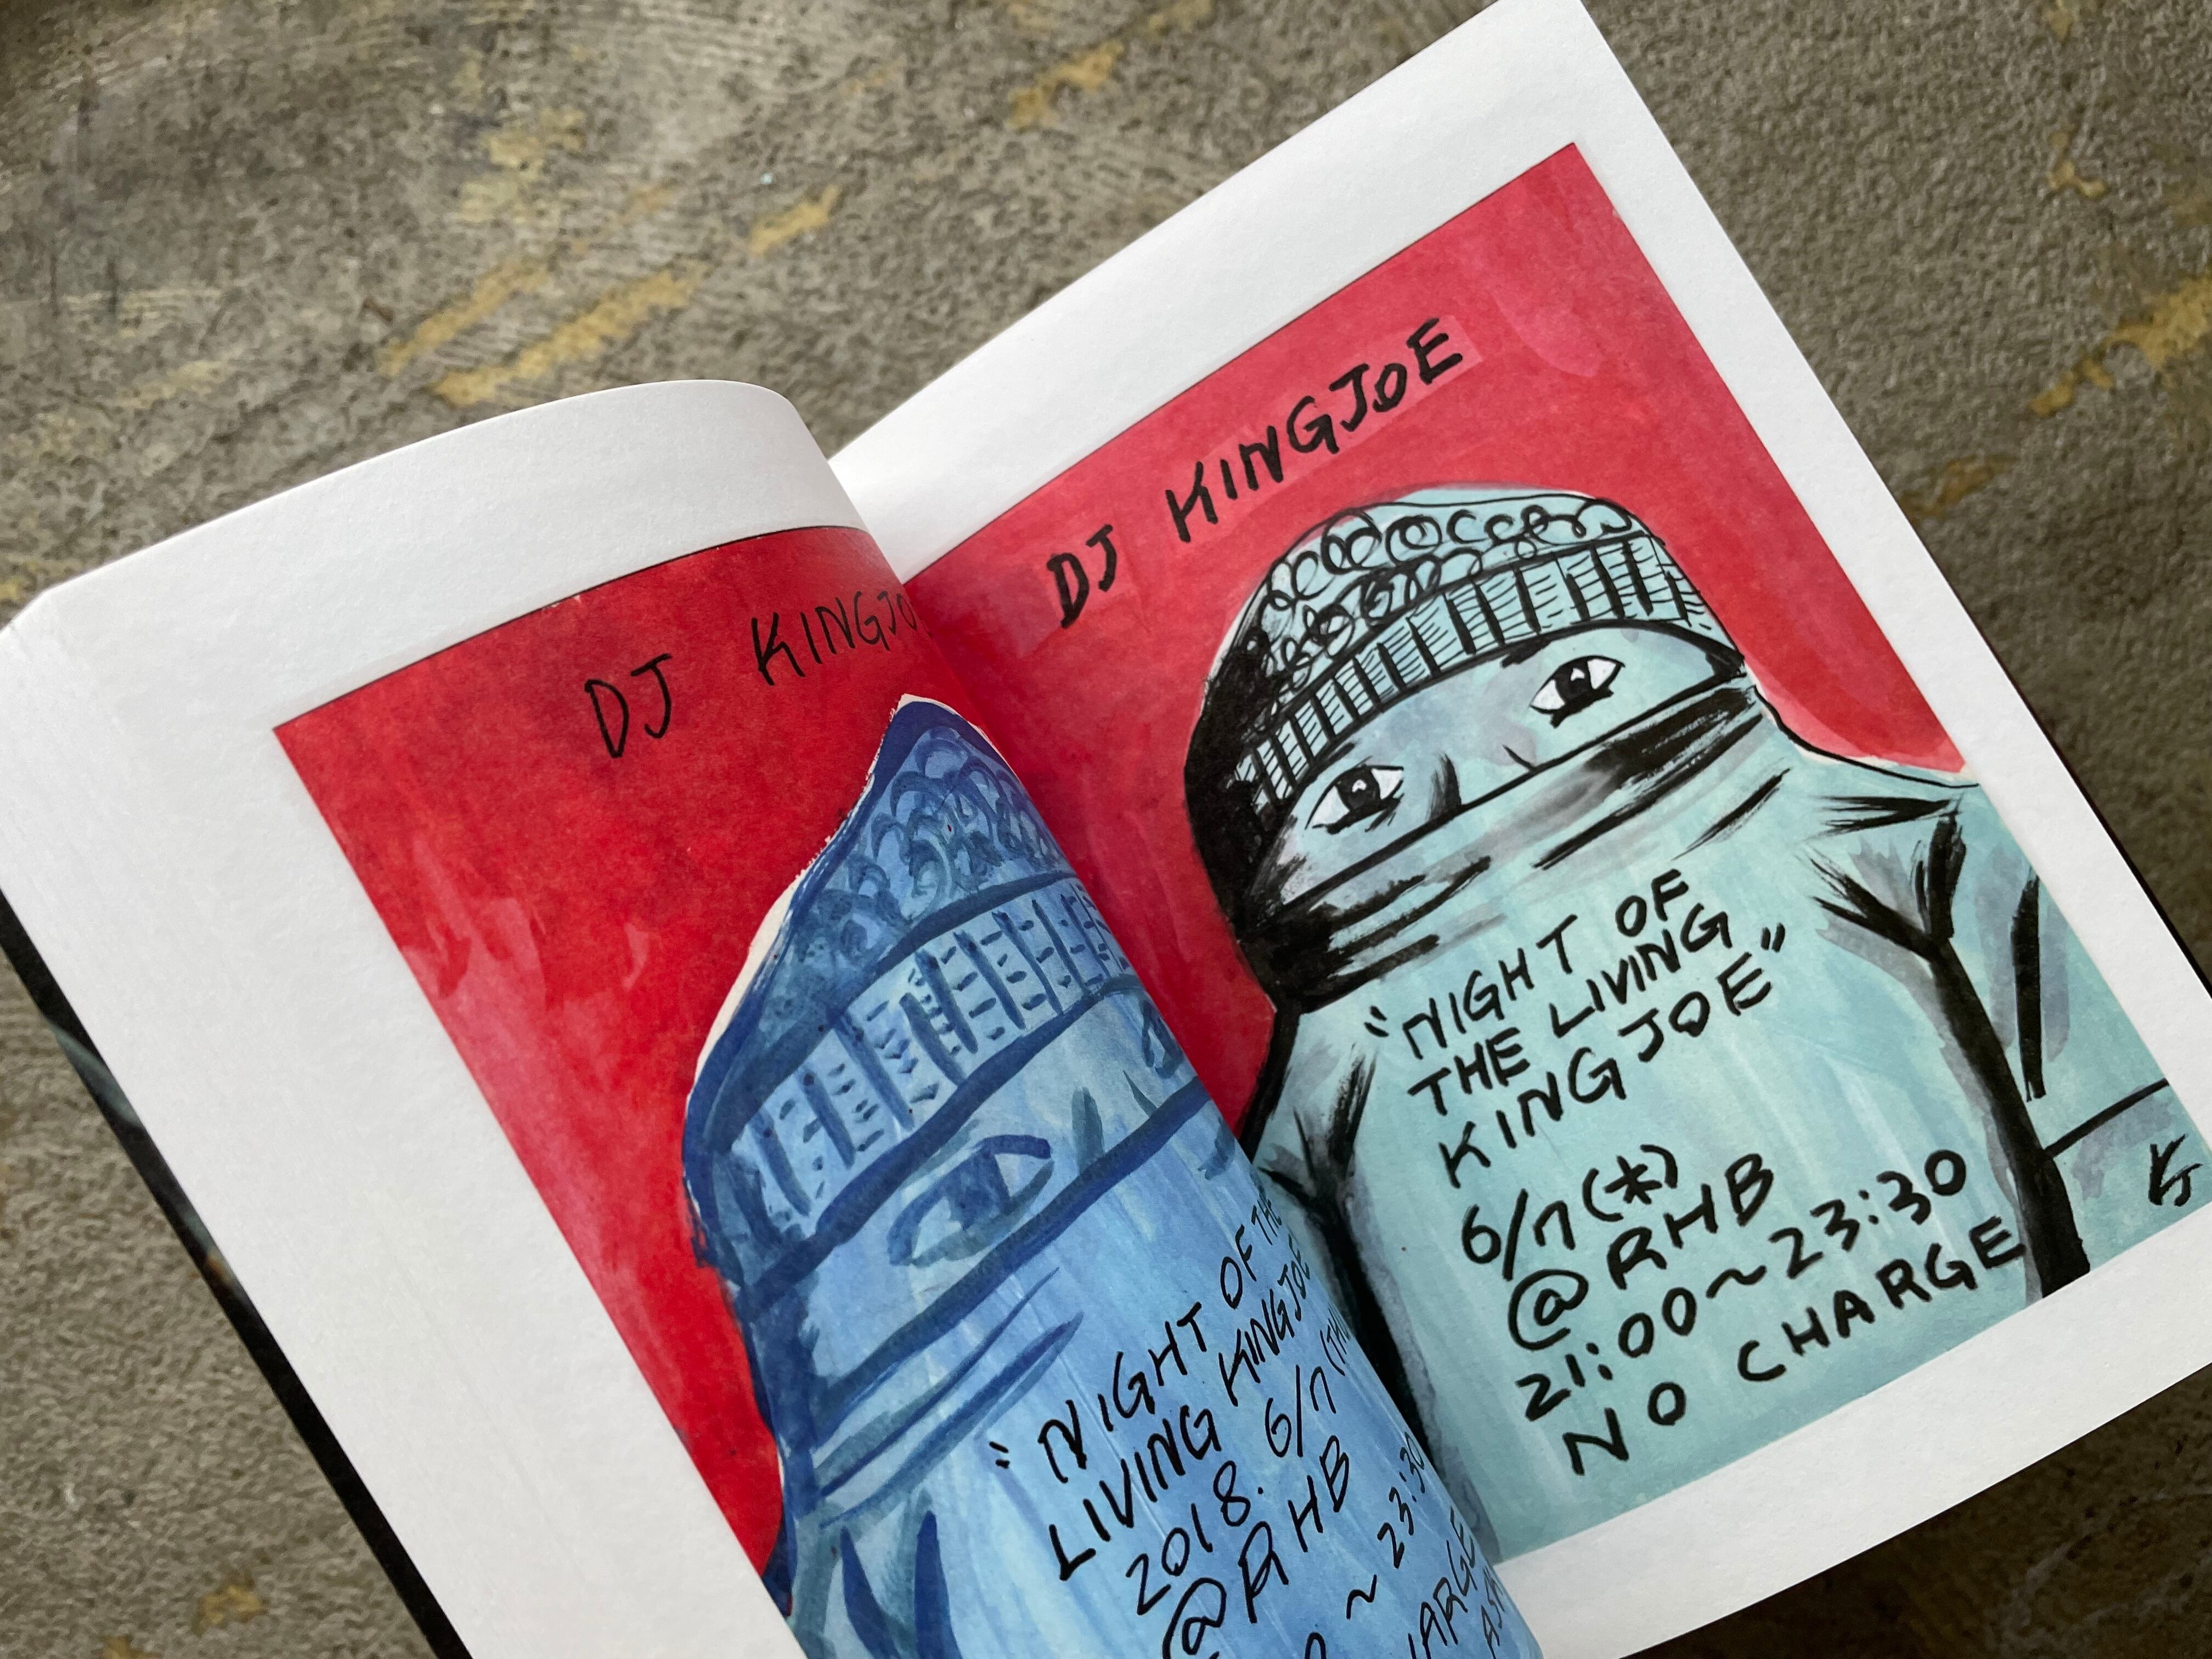 DJ KINGJO
"NIGHT OF THE
LIVING KINGJOE
2018. 6/7 (THU
@RHB
~ 23:30
ARGE
DJ KINGJOE
"NIGHT OF
THE LIVING
KINGJOE"
6/7(*)
@RHB
21:00~23:30
NO CHARGE
KJ